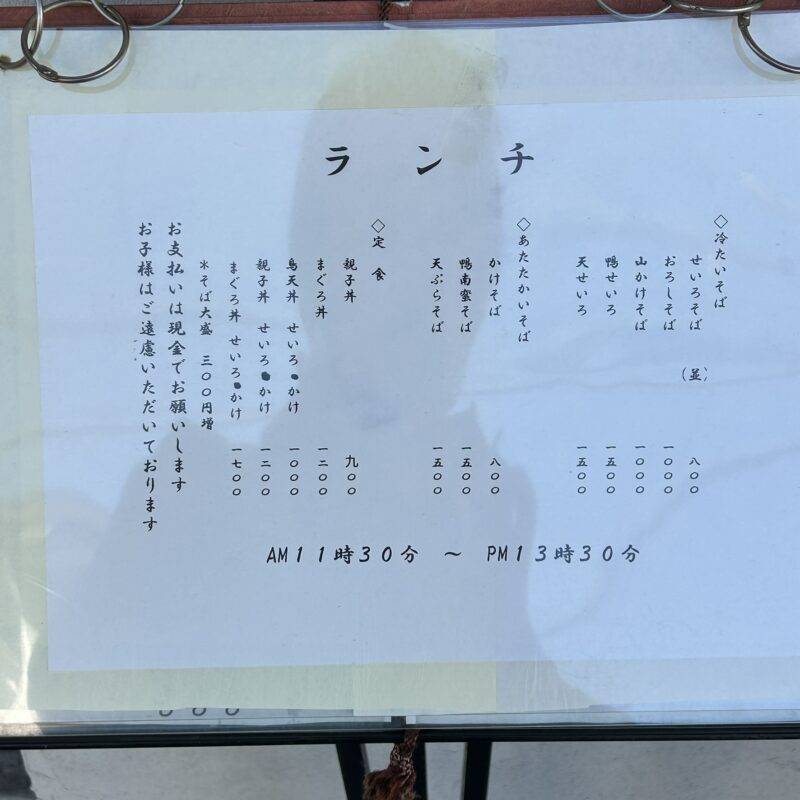 ランチ
◇冷たいそば
せいろそば (並) 八〇〇
おろしそば 一〇〇〇
山かけそば 一〇〇〇
鴨せいろ 一五〇〇
天せいろ 一五〇〇
◇あたたかいそば
かけそば 八〇〇
鴨南蛮そば 一五〇〇
天ぷらそば 一五〇〇
◇定食
親子丼 九〇〇
まぐろ丼 一二〇〇
鳥天丼 せいろ・かけ 一〇〇〇
親子丼 せいろ・かけ 一二〇〇
まぐろ丼 せいろ・かけ 一七〇〇
*そば大盛 三〇〇円増
お支払いは現金でお願いします
お子様はご遠慮いただいております
AM11時30分 ～ PM13時30分